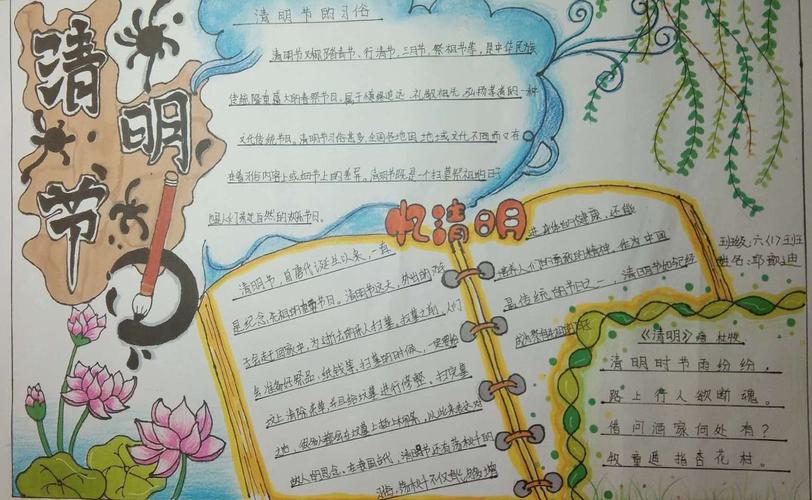 清明节
清明节的习俗
清明节又称踏青节、行清节、三月节、祭祖节等,是中华民族
传统隆重盛大的春祭节日,属于慎终追远、礼敬祖先、弘扬孝道的一种
文化传统节日。清明节习俗甚多,全国各地因地域文化不同而又存
在着习俗内容上或细节上的差异。清明节既是一个扫墓祭祖的日
人们亲近自然的欢乐节日。
忆清明
清明节,自唐代诞生以来,一直
是纪念先祖的重要节日。清明节这天,外出的
去准备好祭品、纸钱等。扫墓的时候,一定要
坟上清除杂草,并且给坟墓进行修整。扫完墓
故人的思念。在我国古代,清明节还有荡秋千的
习俗,荡秋千不仅
进身体的健康,还能
培养人们的勇敢的精神。作为中国
最传统的节日之一,清明节如今已经
班级:六(1)班
姓名:
《清明》唐 杜牧
清明时节雨纷纷,
路上行人欲断魂。
借问酒家何处有?
牧童遥指杏花村。